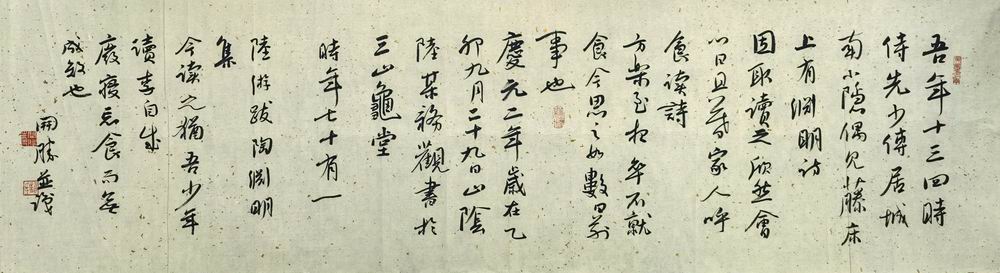 吾年十三四時
侍先少傅居城
南小隱偶見藤床
上有渊明诗
因取讀之欣然會
心日且暮家人呼
食读詩
方樂至夜卒不就
食今思之如數日前
事也
慶元二年歲在乙
卯九月二十九日山陰
陸某務觀書於
三山龜堂
時年七十有一
陸游跋陶渊明
集
今读之猶吾少年
讀李自成
廢寢忘食而無
成也
開勝並識